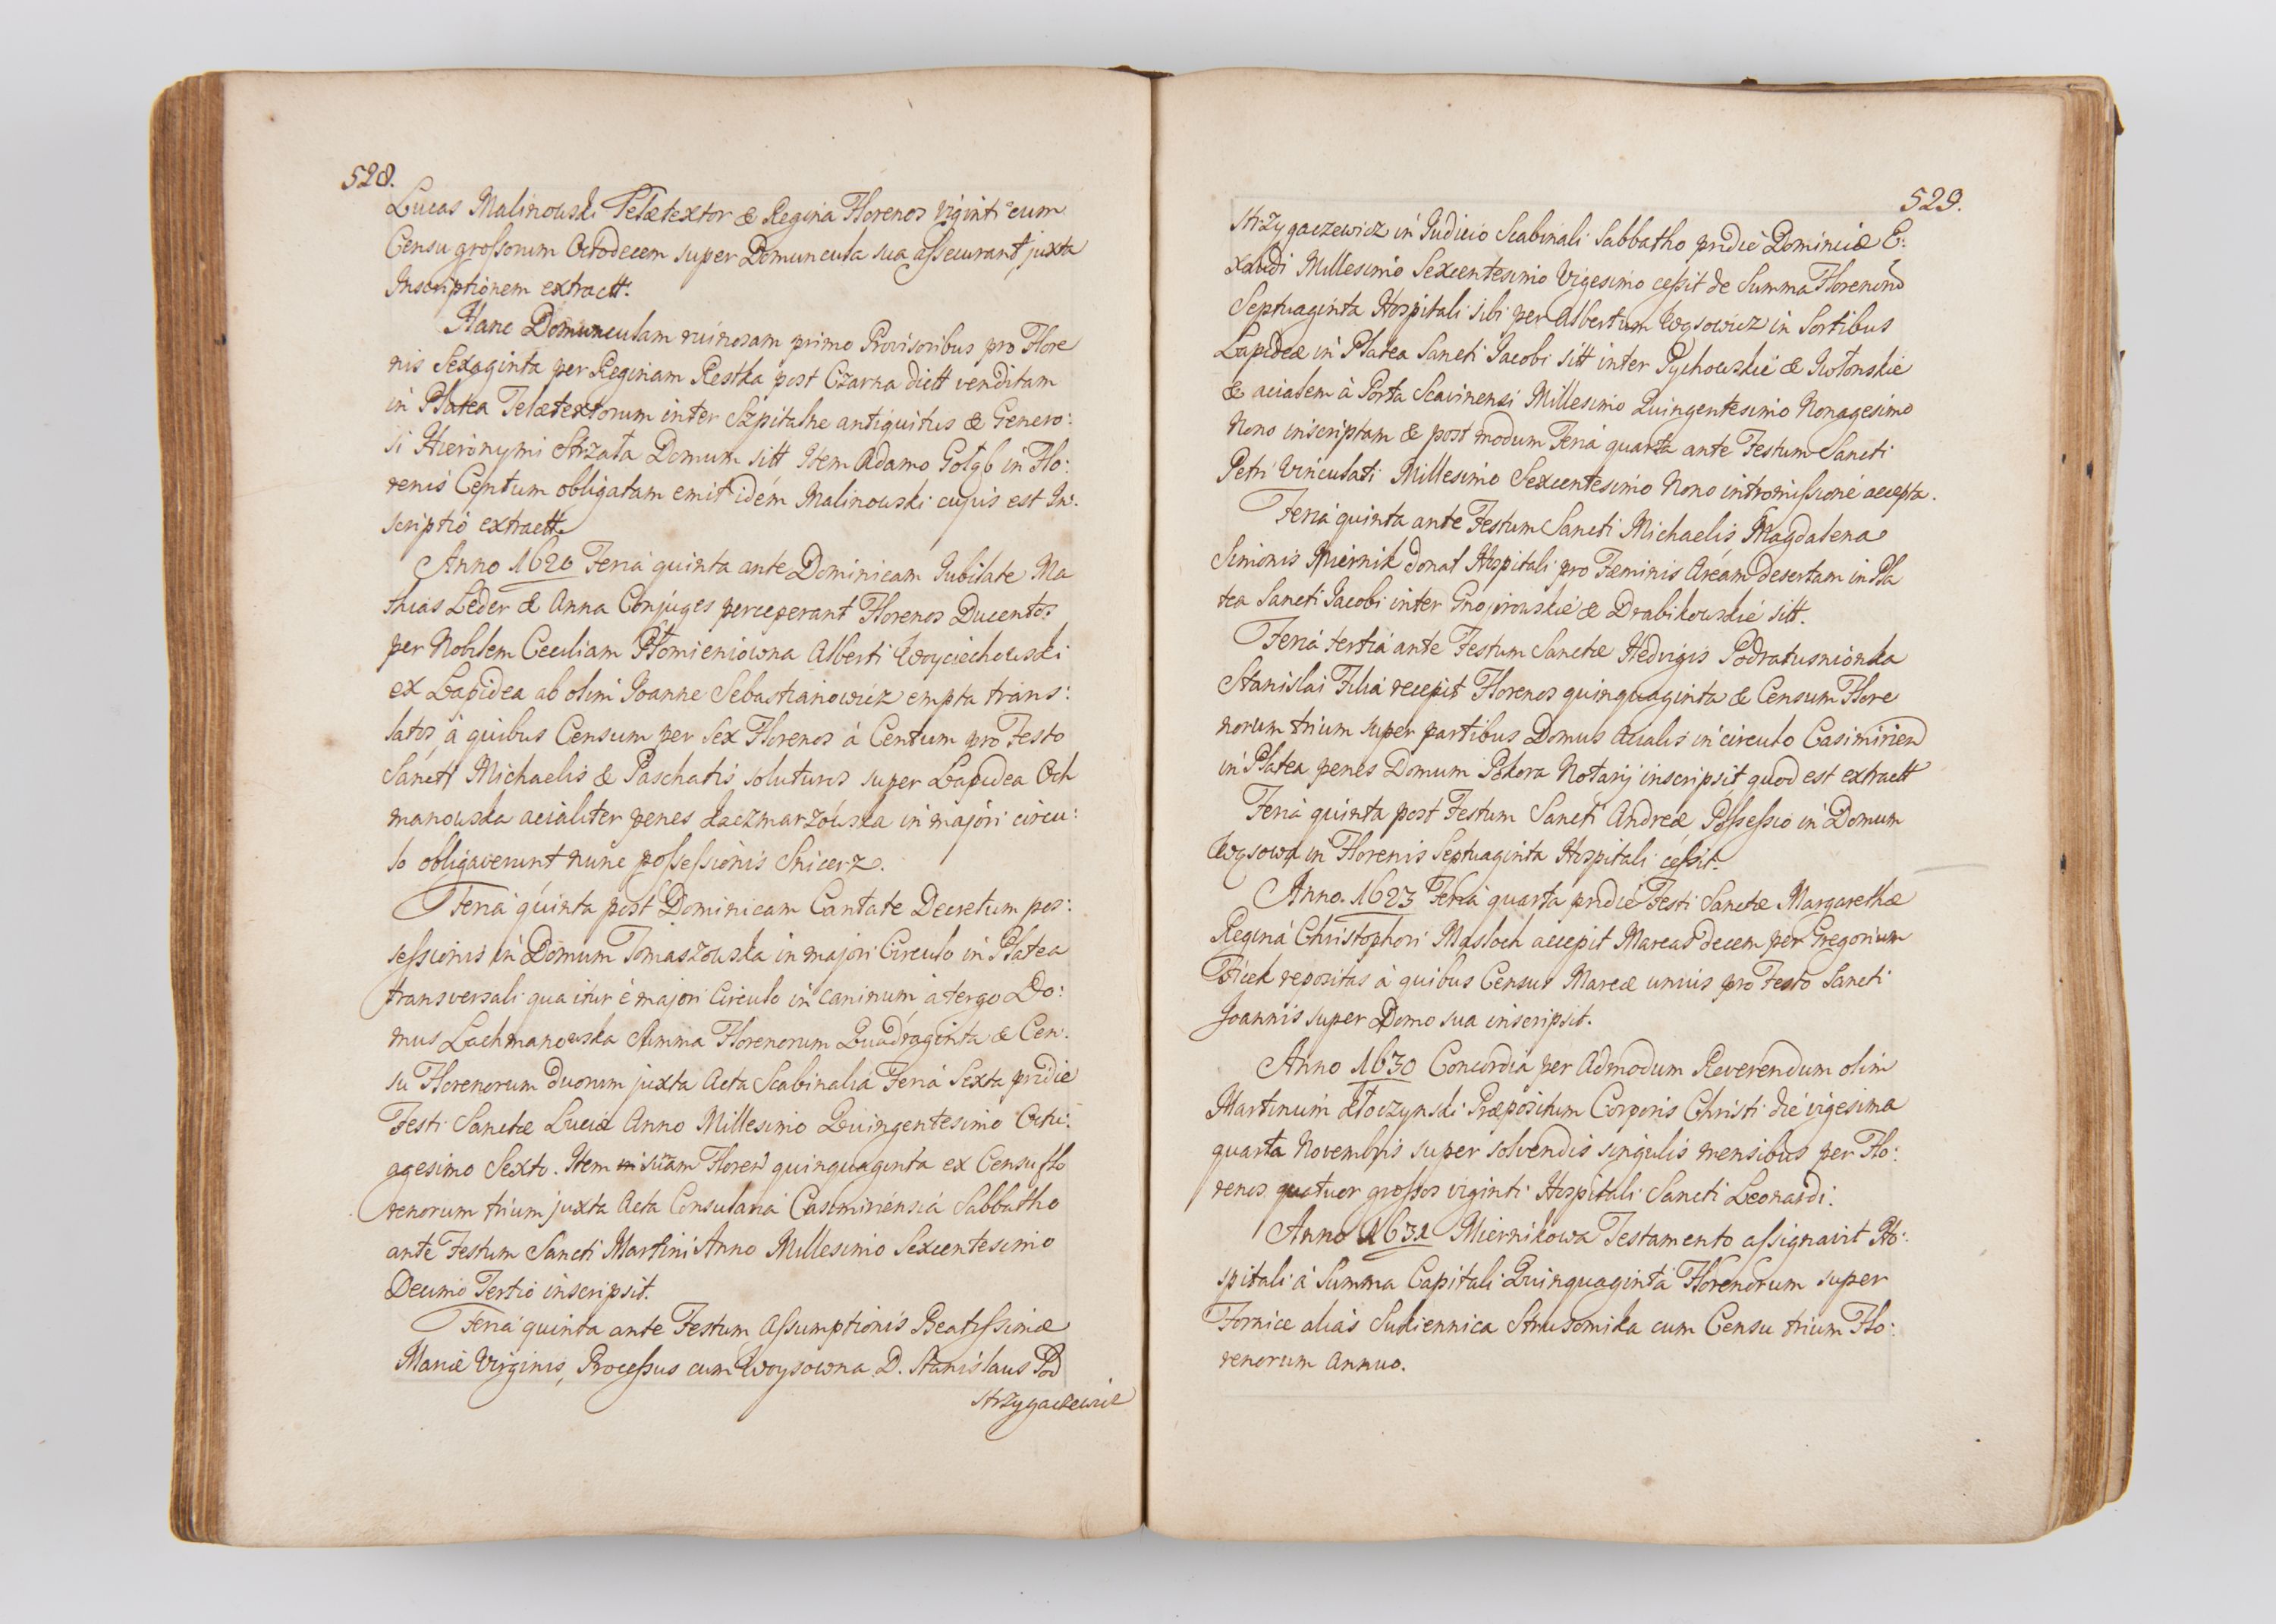 528.
Lucas Malinowski Telætextor & Regina Florenos Viginti cum
Censu grossorum Octodecem super Domuncula sua assecurant juxta
Inscriptionem extractt.
Hanc Domunculam ruinosam primo Provisoribus pro Flore
nis Sexaginta per Reginam Restka post Czarna dictt venditam
in Platea Telætextorum inter Szpitalne antiquitus & Genero:
si Hieronymi Strzała Domum sitt Item Adamo Gołąb in Flo:
renis Centum obligatam emit idem Malinowski cujus est In:
scriptio extractt.
Anno 1620 Feria quinta ante Dominicam Jubilate Ma
thias Leder & Anna Conjuges perceperant Florenos Ducentos
per Noblem Ceciliam Płomieniowna Alberti Woyciechowski
ex Lapidea ab olim Joanne Sebastianowicz empta trans:
latos, à quibus Censum per Sex Florenos à Centum pro Festo
Sancti Michaelis & Paschatis soluturos super Lapidea Och
manowska acialiter penes Kaczmarzowska in majori circu:
lo obligaverunt nunc possessionis Snicerz.
Feria quinta post Dominicam Cantate Decretum pos:
sessionis in Domum Tomaszowska in majori Circulo in Platea
transversali qua itur è majori Circulo in Caninum à tergo Do:
mus Lachmanowska Summa Florenorum Quadraginta & Cen:
su Florenorum duorum juxta Acta Scabinalia Feria Sexta pridie
Festi Sanctæ Luciæ Anno Millesimo Quingentesimo Octu:
agesimo Sexto. Item in suam Floren quinquaginta ex Censu flo
renorum trium juxta Acta Consularia Casimiriensia Sabbatho
ante Festum Sancti Martini Anno Millesimo Sexcentesimo
Decimo Tertio inscripsit.
Feria quinta ante Festum Assumptionis Beatissimæ
Mariæ Virginis, Processus cum Woysowna D. Stanislaus Pod
strzygaczewic
529.
strzygaczewicz in Judicio Scabinali Sabbatho pridie Dominicæ E:
xaudi Millesimo Sexcentesimo Vigesimo cessit de Summa Floreno
Septuaginta Hospitali sibi per Albertum Wąsowicz in Sortibus
Lapideæ in Platea Sancti Jacobi sitt inter Pychowskie & Kwotonskie
& acialem à Porta Scavinensi Millesimo Quingentesimo Nonagesimo
Nono inscriptam & post modum Feria quarta ante Festum Sancti
Petri Vinculati Millesimo Sexcentesimo Nono intromissione accepta.
Feria quinta ante Festum Sancti Michaelis Magdalena
Simonis Miernik donat Hospitali pro Fæminis Aream desertam in Pla
tea Sancti Jacobi inter Gnojrowskie & Drabikowskie sitt.
Feria tertia ante Festum Sanctæ Hedvigis Podratusnionka
Stanislai Filia recepit Florenos quinquaginta & Censum Flore
norum trium super partibus Domus Acialis in circulo Casimirien
in Platea penes Domum Pokora Notarij inscripsit quod est extractt
Feria quinta post Festum Sancti Andreæ Possessio in Domum
Wąsowa in Florenis Septuaginta Hospitali cessit.
Anno. 1623 Feria quarta pridie Festi Sanctæ Margarethæ
Regina Christophori Masloch accepit Marcas decem per Gregorium
repositas à quibus Census Marcæ unius pro Festo Sancti
Joannis super Domo sua inscripsit.
Anno 1630 Concordia per Admodum Reverendum olim
Martinum Kłoczynski Præpositum Corporis Christi die vigesima
quarta Novembris super solvendis singulis mensibus per Flo:
renos quatuor grossos viginti Hospitali Sancti Leonardi.
Anno 1631 Miernikowa Testamento assignavit Ho:
spitali à Summa Capitali Quinquaginta Florenorum super
Fornice alias Sukiennica Strusomika cum Censu trium Flo:
renorum Annuo.